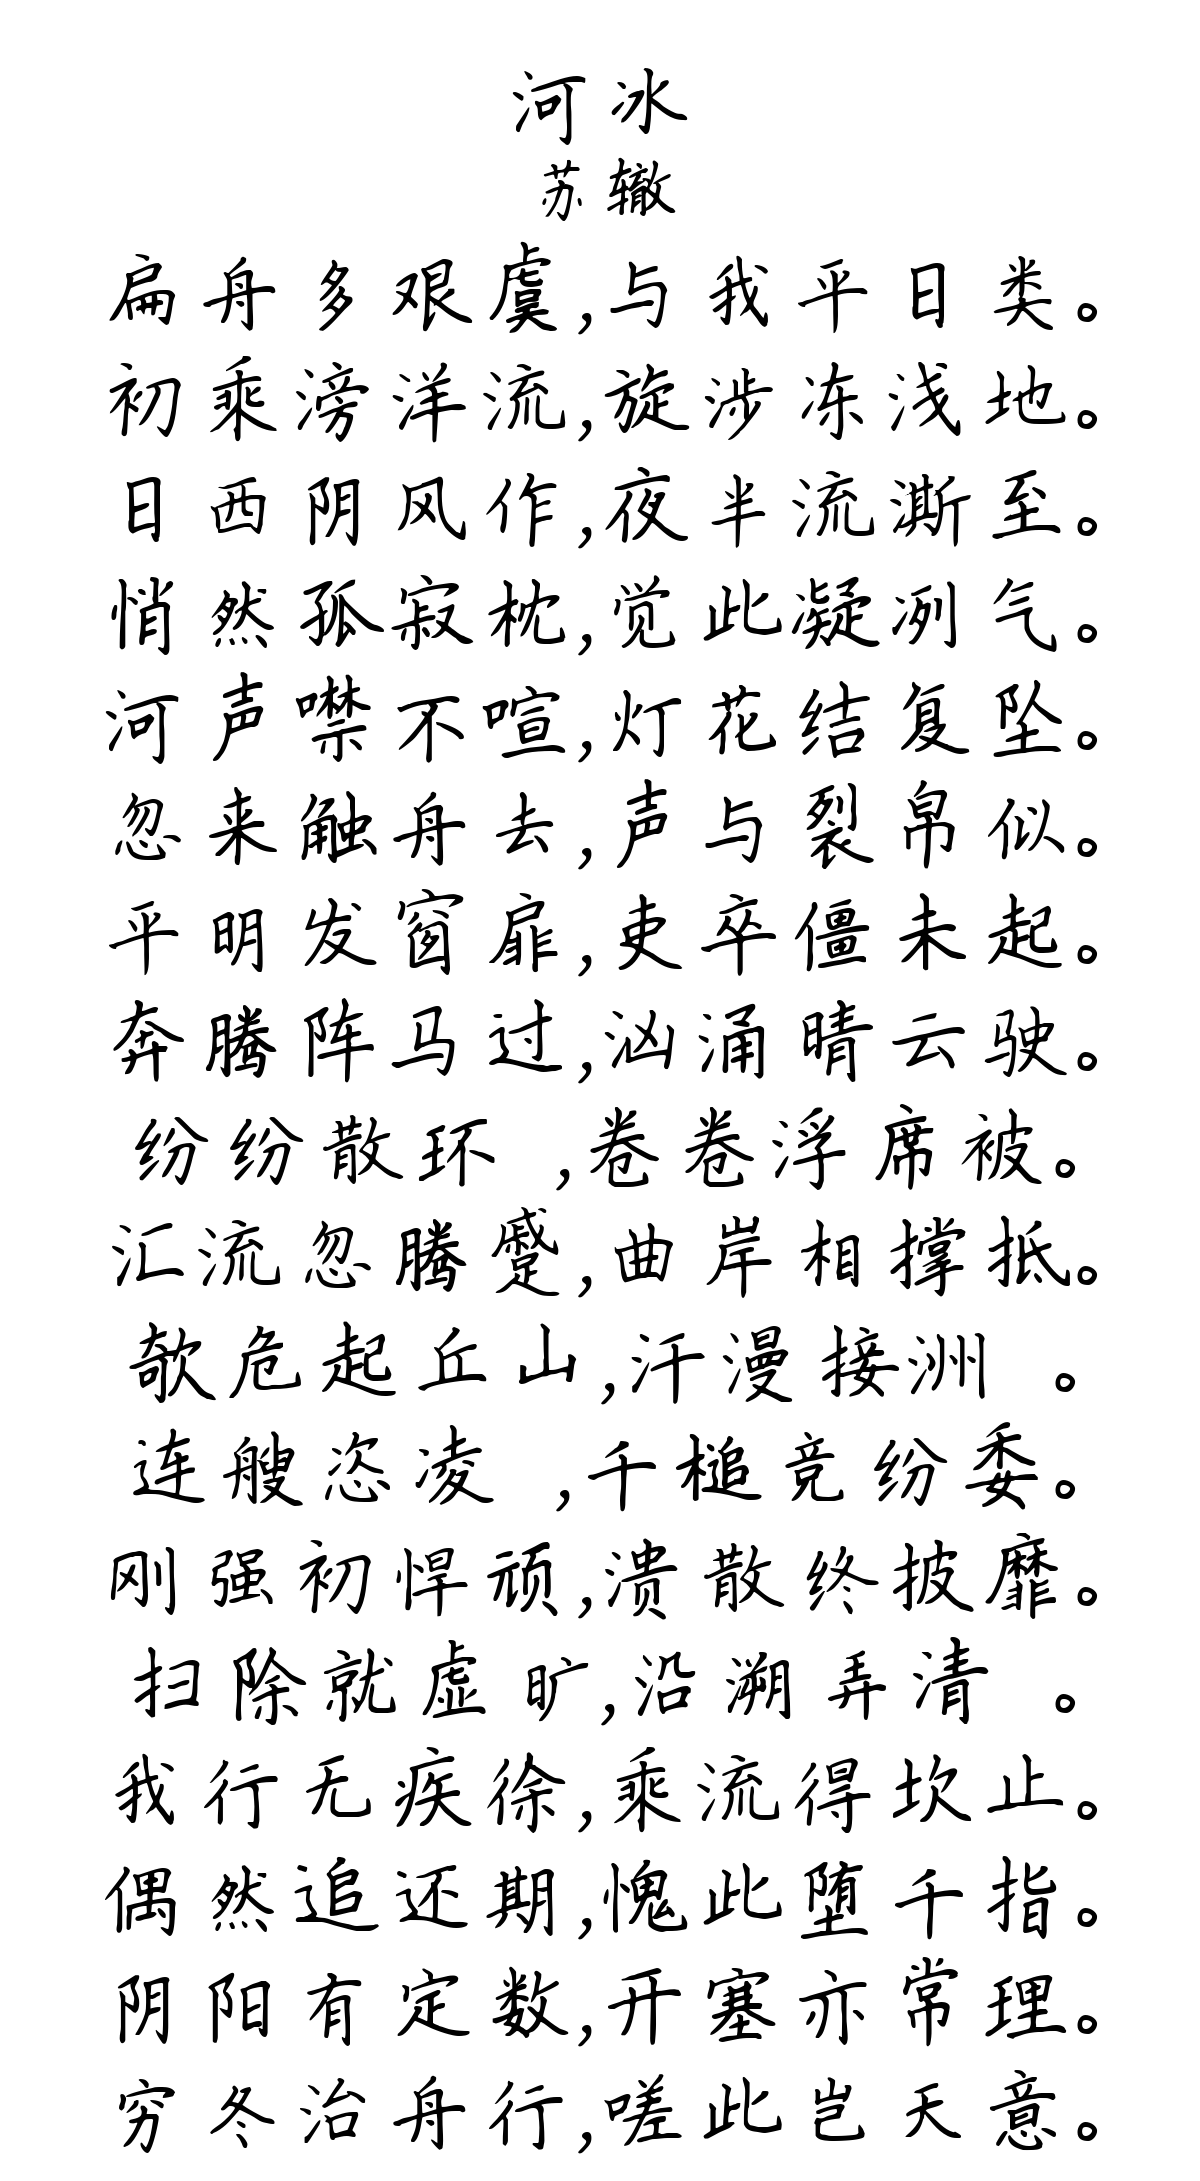 河冰
苏辙
扁舟多艰虞,与我平日类。
初乘滂洋流,旋涉冻浅地。
日西阴风作,夜半流澌至。
悄然孤寂枕,觉此凝冽气。
河声噤不喧,灯花结复坠。
忽来触舟去,声与裂帛似。
平明发窗扉,吏卒僵未起。
奔腾阵马过,汹涌晴云驶。
纷纷散环 ,卷卷浮席被。
汇流忽腾蹙,曲岸相撑抵。
欹危起丘山,汗漫接洲 。
连艘恣凌 ,千槌竞纷委。
刚强初悍顽,溃散终披靡。
扫除就虚旷,沿溯弄清 。
我行无疾徐,乘流得坎止。
偶然追还期,愧此堕千指。
阴阳有定数,开塞亦常理。
穷冬治舟行,嗟此岂天意。